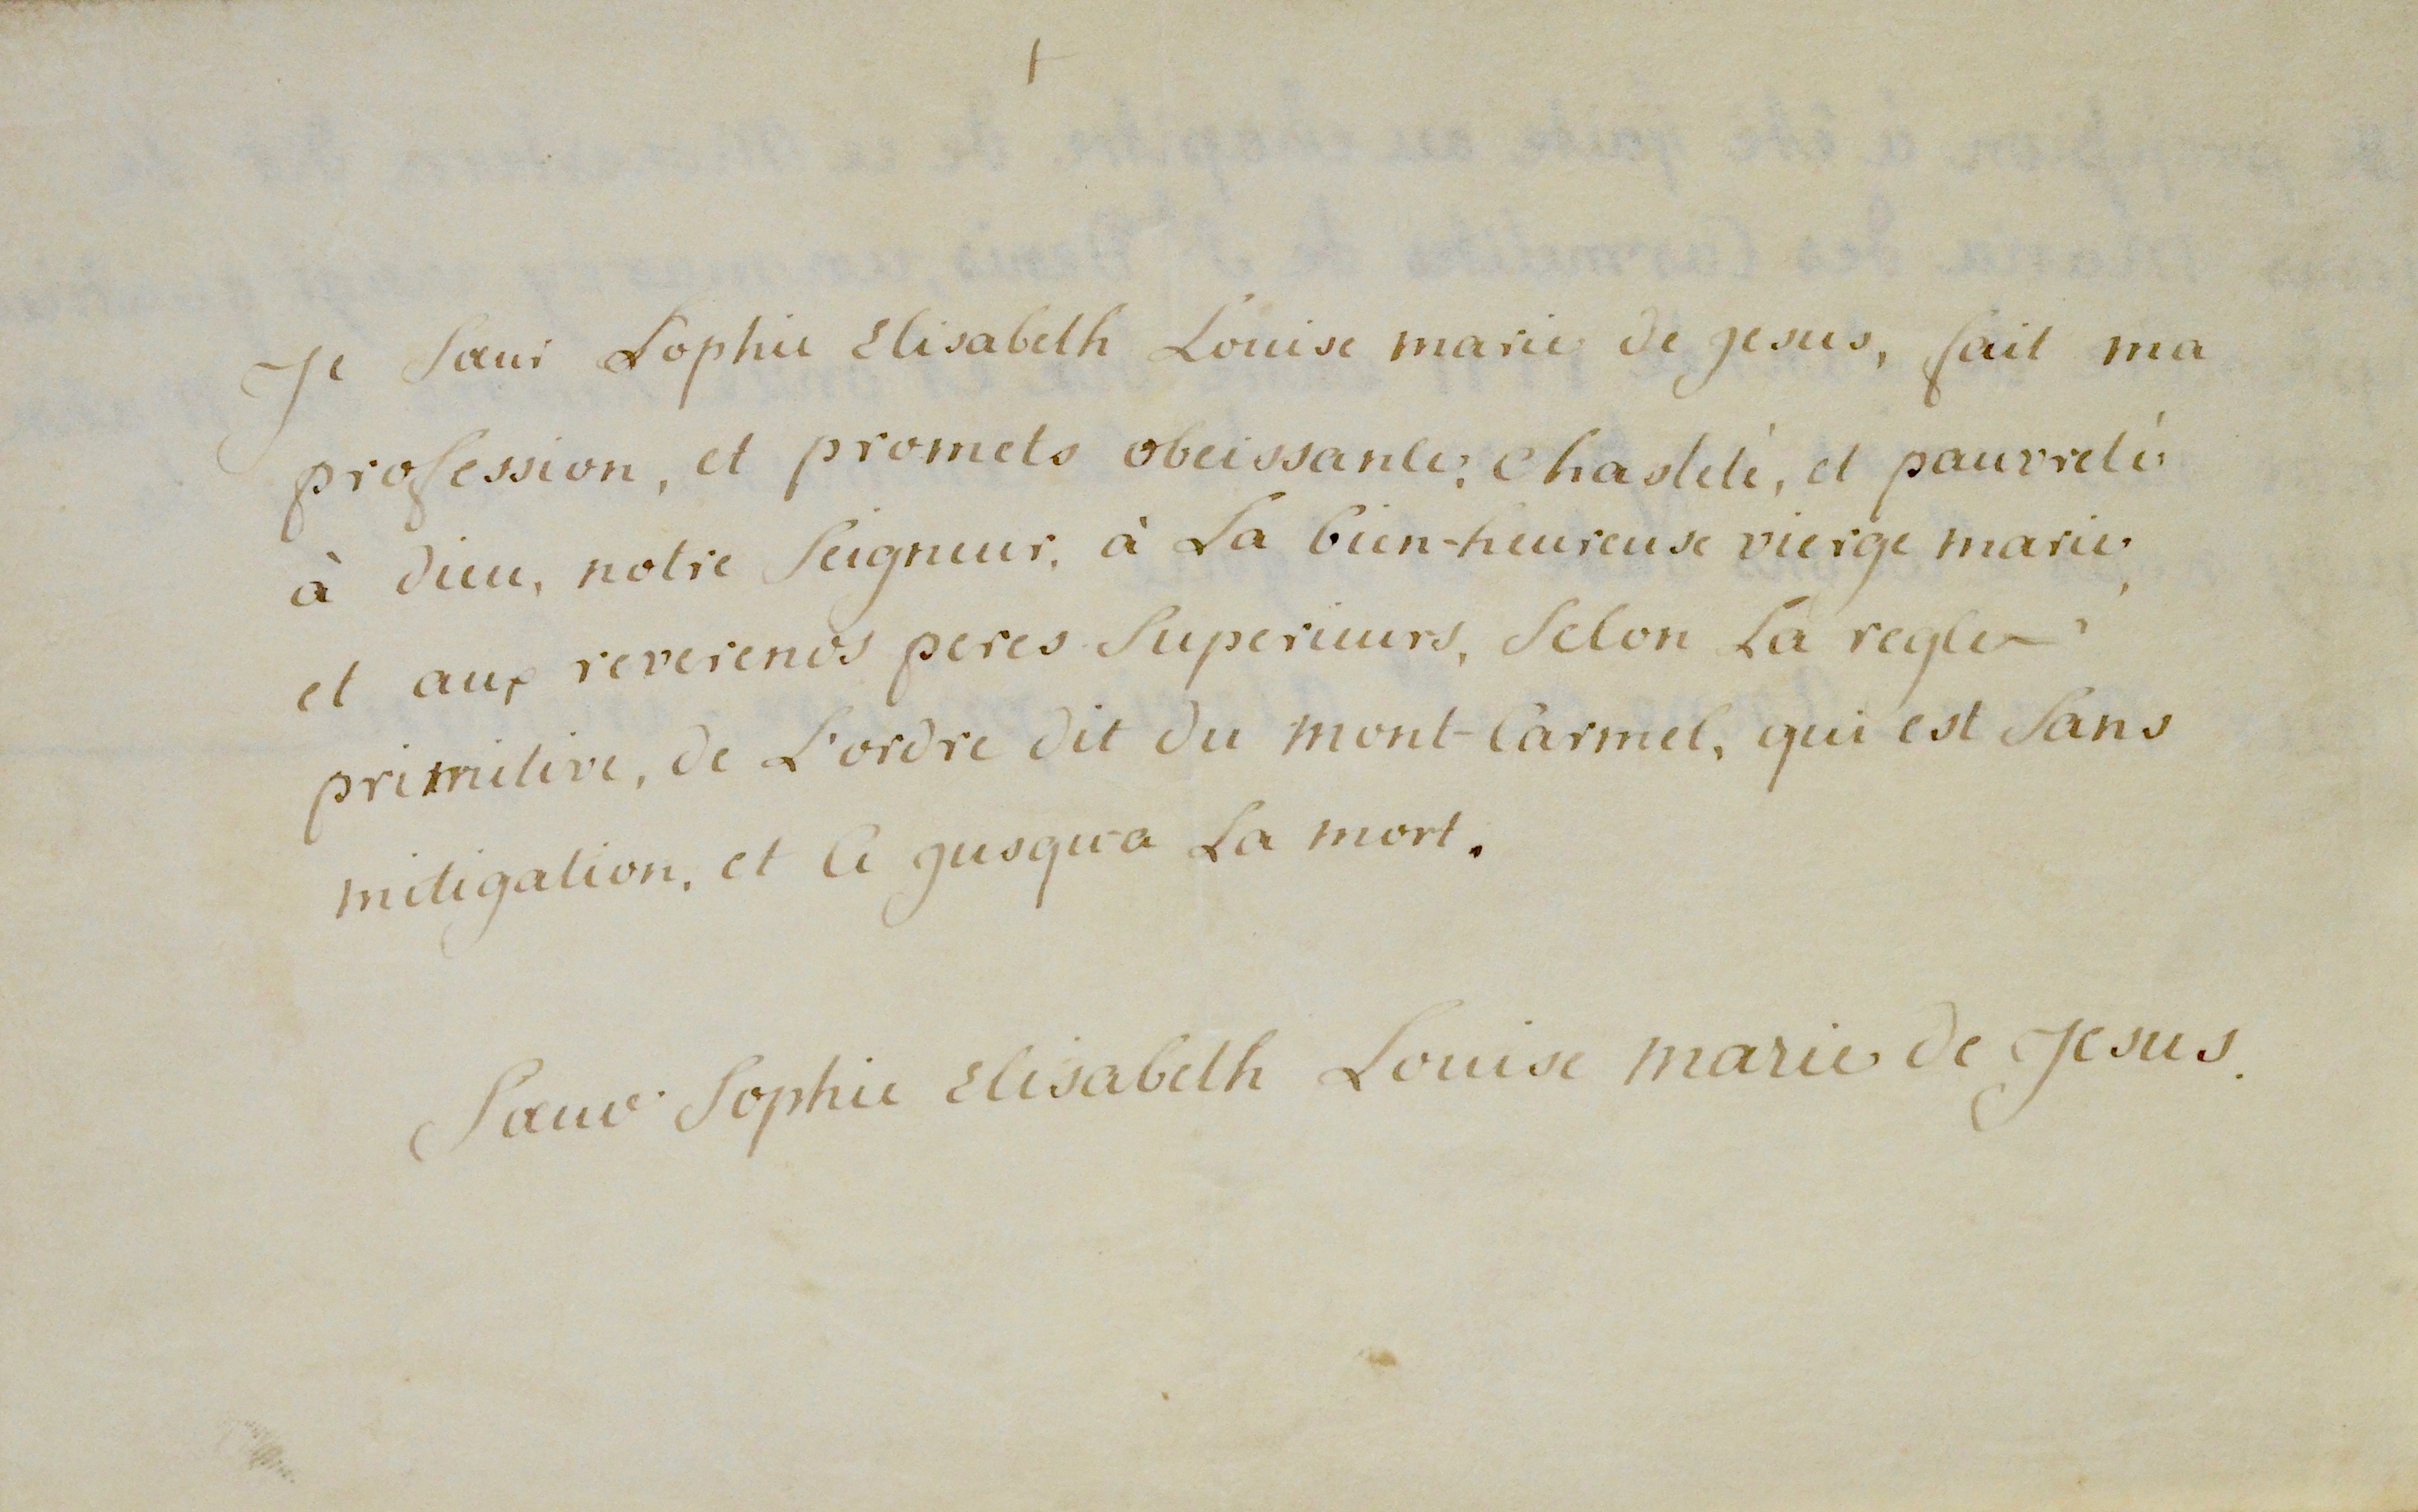 †
Je Sœur Sophie Elisabeth Louise marie de jesus, fait ma
profession, et promets obeissance, Chasteté, et pauvreté
à dieu, notre Seigneur, à La bien-heureuse vierge marie,
et aux reverends peres Superieurs, Selon La regle
primitive, de L'ordre dit du mont-Carmel, qui est Sans
mitigation, et ce jusqu'a La mort.
Sœur Sophie Elisabeth Louise marie de Jesus.